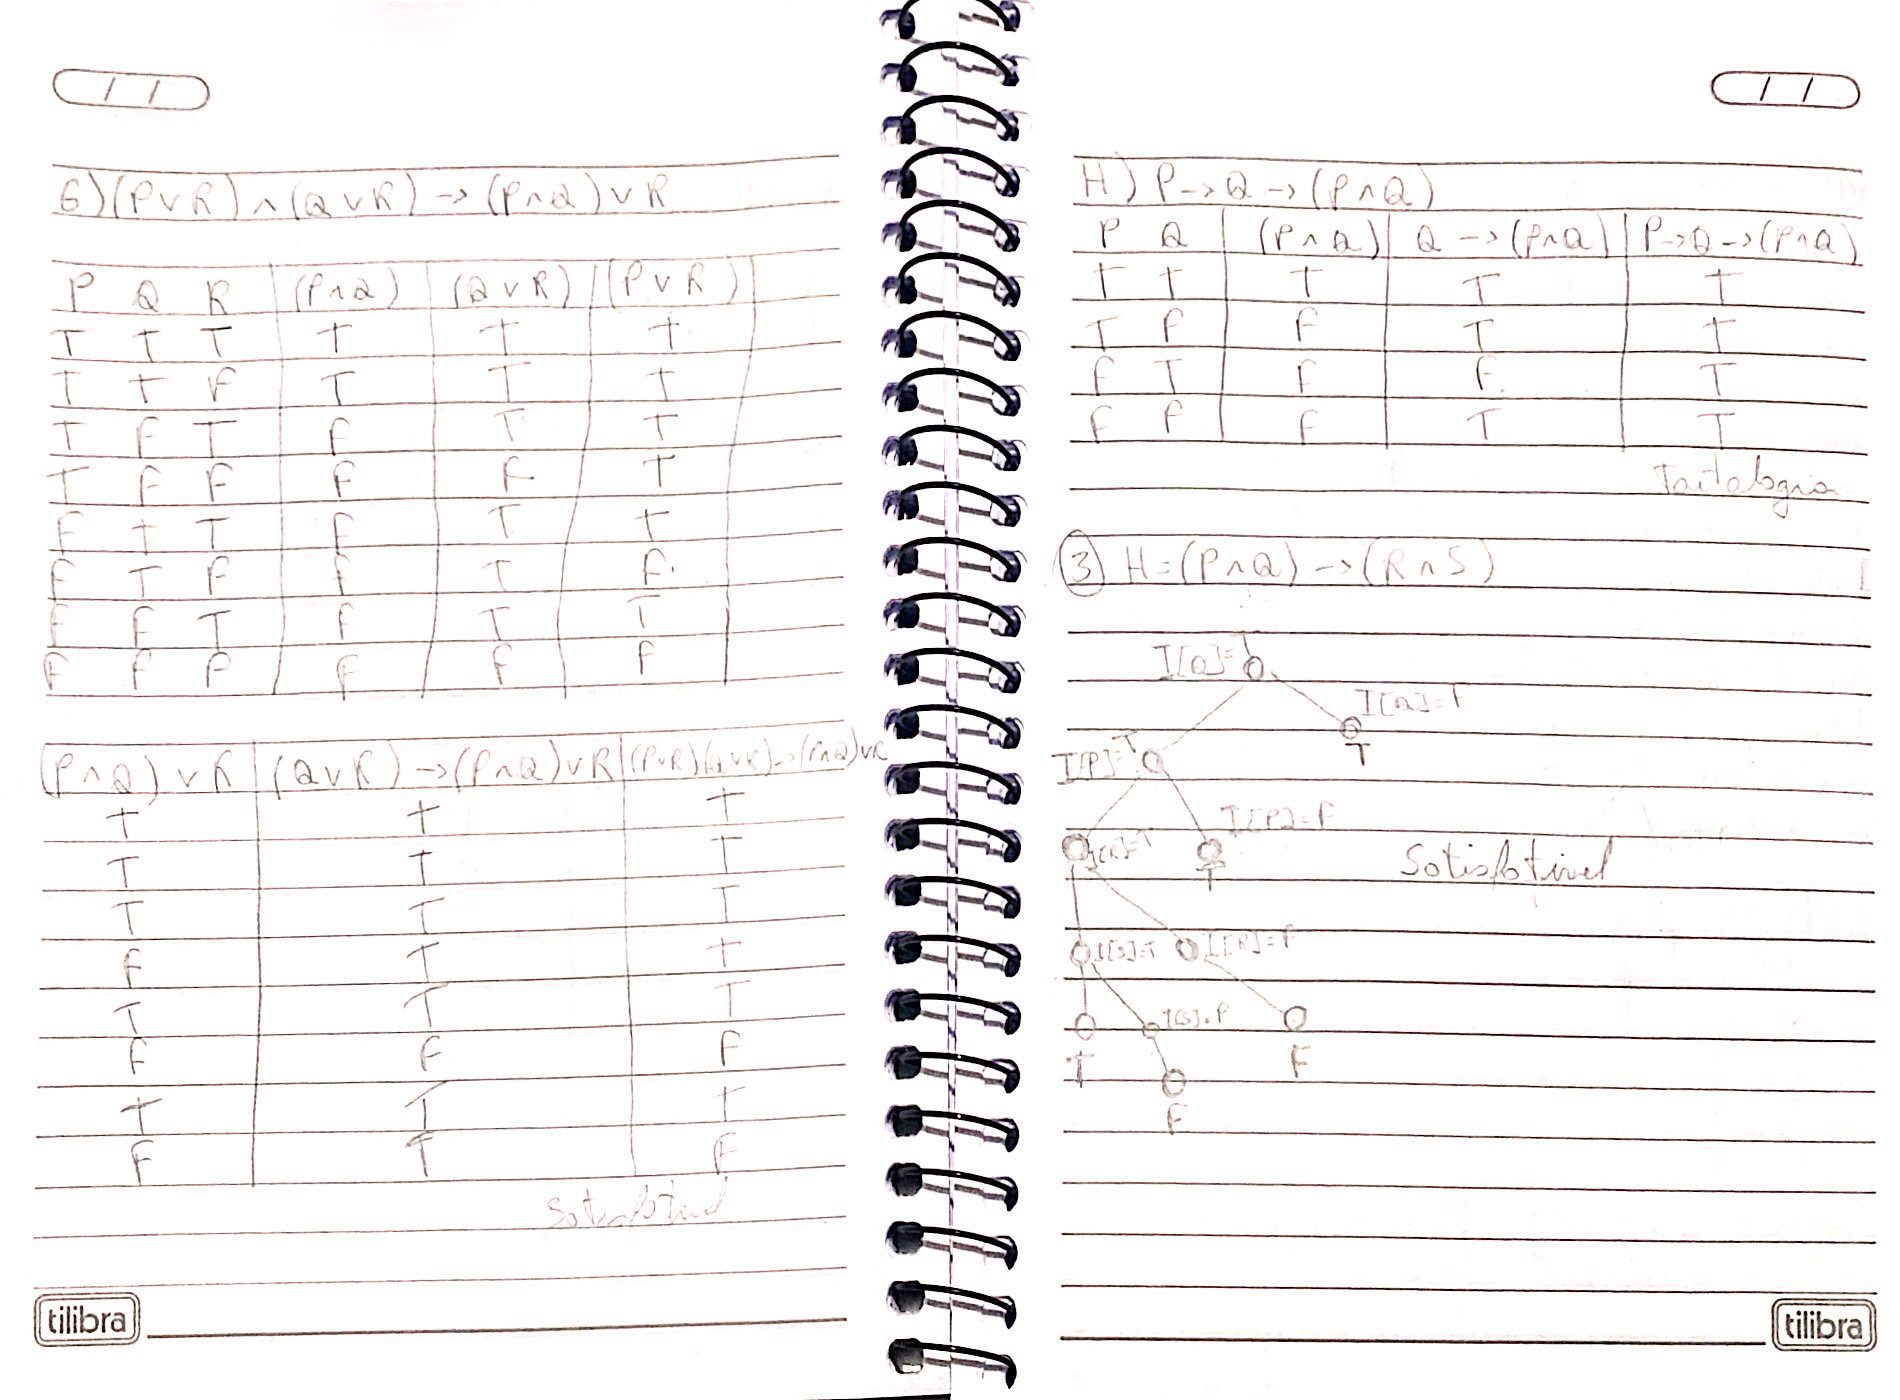 / /
G) (P ∨ R) ∧ (Q ∨ R) → (P ∧ Q) ∨ R
P Q R (P ∧ Q) (Q ∨ R) (P ∨ R)
T T T T T T
T T F T T T
T F T F T T
T F F F F T
F T T F T T
F T F F T F
F F T F T T
F F F F F F
(P ∧ Q) ∨ R (Q ∨ R) → (P ∧ Q) ∨ R (P ∨ R) (Q ∨ R) → (P ∧ Q) ∨ R
T T T
T T T
T T T
F T T
T T T
F F F
T T T
F T F
Satisfatível
tilibra
/ /
H) P → Q → (P ∧ Q)
P Q (P ∧ Q) Q → (P ∧ Q) P → Q → (P ∧ Q)
T T T T T
T F F T T
F T F F T
F F F T T
Tautologia
3 H = (P ∧ Q) → (R ∧ S)
I[Q]=T
I[Q]=F
T
I[P]=T
I[P]=F
I[R]=T
T
Satisfatível
I[S]=T I[R]=F
I[S]=F
T F
F
tilibra